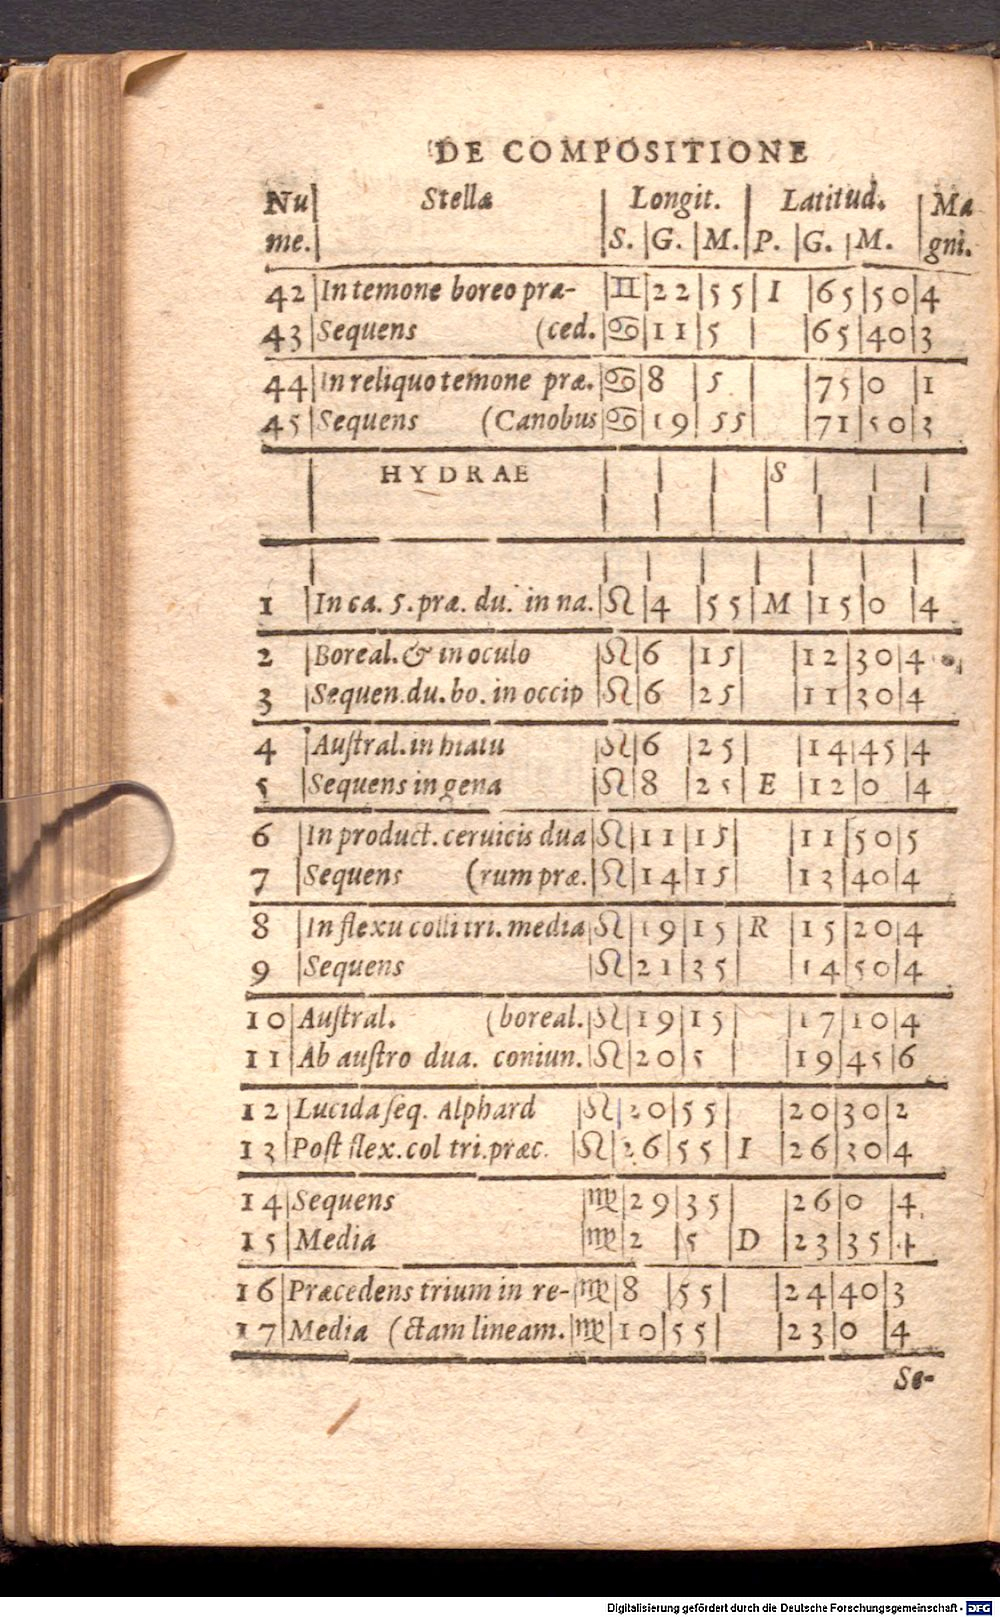 DE COMPOSITIONE
Nu | Stellæ | Longit. | Latitud. | Ma
me. | | S. | G. | M. | P. | G. | M. | gni.
42 | In temone boreo præ- | ♊ | 22 | 55 | I | 65 | 50 | 4
43 | Sequens (ced. | ♋ | 11 | 5 | | 65 | 40 | 3
44 | In reliquo temone præ. | ♋ | 8 | 5 | | 75 | 0 | 1
45 | Sequens (Canobus | ♋ | 19 | 55 | | 71 | 50 | 3
HYDRAE | S
1 | In ca. 5. præ. du. in na. | ♌ | 4 | 55 | M | 15 | 0 | 4
2 | Boreal. & in oculo | ♌ | 6 | 15 | | 12 | 30 | 4
3 | Sequen. du. bo. in occip | ♌ | 6 | 25 | | 11 | 30 | 4
4 | Auſtral. in hiatu | ♌ | 6 | 25 | | 14 | 45 | 4
5 | Sequens in gena | ♌ | 8 | 25 | E | 12 | 0 | 4
6 | In product. ceruicis dua | ♌ | 11 | 15 | | 11 | 50 | 5
7 | Sequens (rum præ. | ♌ | 14 | 15 | | 13 | 40 | 4
8 | In flexu colli tri. media | ♌ | 19 | 15 | R | 15 | 20 | 4
9 | Sequens | ♌ | 21 | 35 | | 14 | 50 | 4
10 | Auſtral. (boreal. | ♌ | 19 | 15 | | 17 | 10 | 4
11 | Ab auſtro dua. coniun. | ♌ | 20 | 5 | | 19 | 45 | 6
12 | Lucida ſeq. Alphard | ♌ | 20 | 55 | | 20 | 30 | 2
13 | Poſt flex. col tri. præc. | ♌ | 26 | 55 | I | 26 | 30 | 4
14 | Sequens | ♍ | 29 | 35 | | 26 | 0 | 4
15 | Media | ♍ | 2 | 5 | D | 23 | 35 | 4
16 | Præcedens trium in re- | ♍ | 8 | 55 | | 24 | 40 | 3
17 | Media (ctam lineam. | ♍ | 10 | 55 | | 23 | 0 | 4
Se-
Digitalisierung gefördert durch die Deutsche Forschungsgemeinschaft - DFG